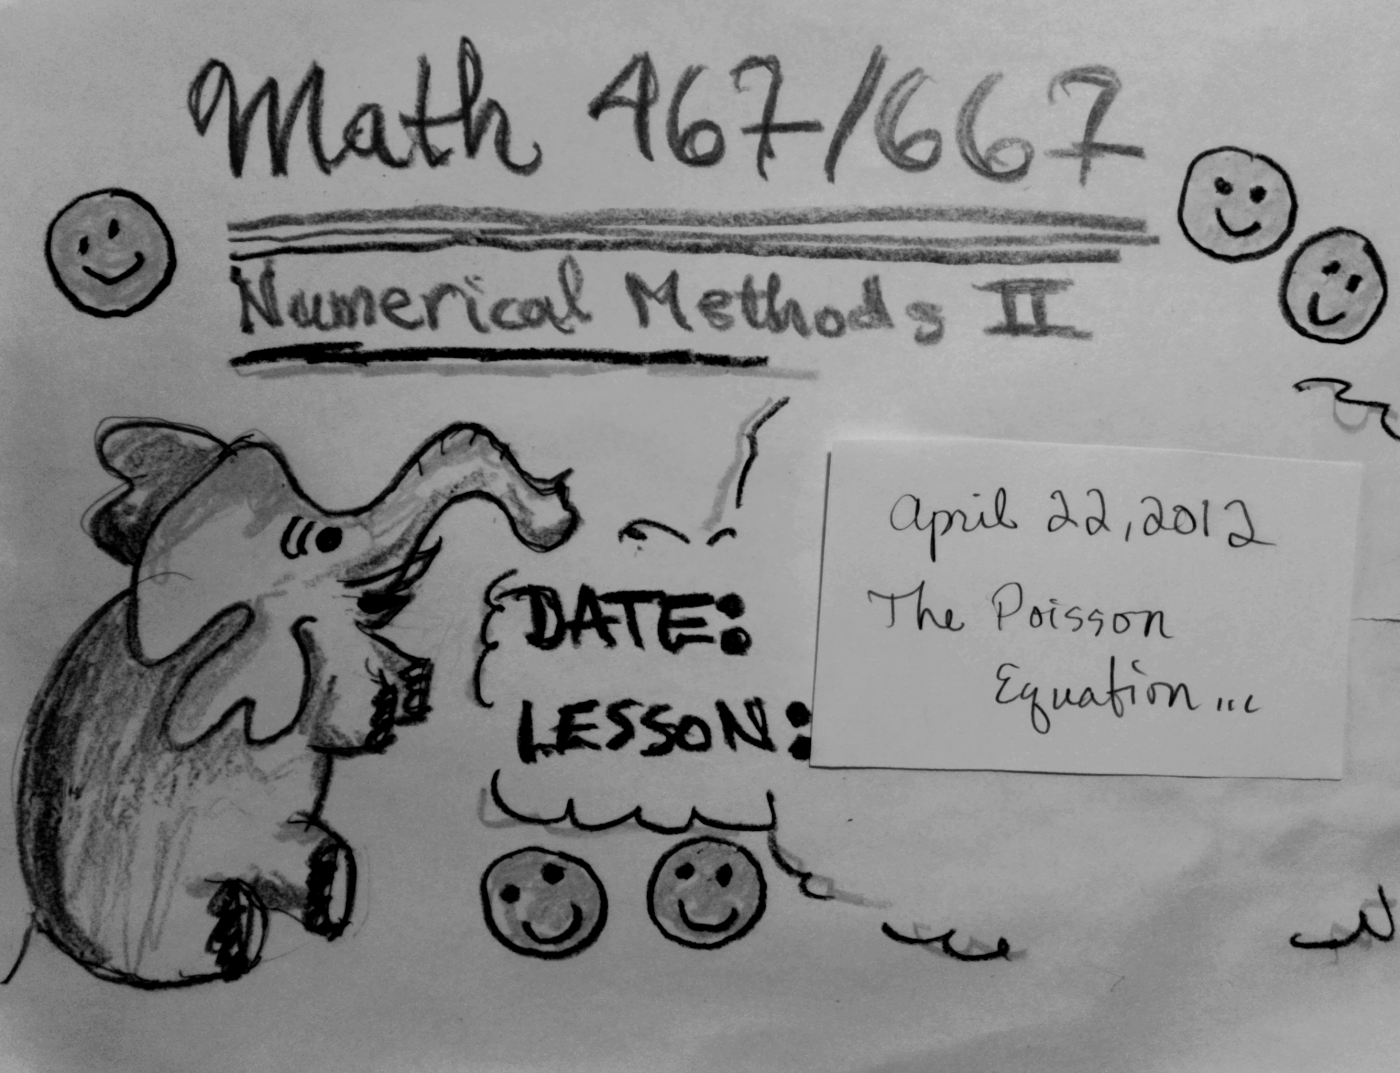 Math 467/667
Numerical Methods II
DATE:
LESSON:
April 22, 2012
The Poisson
Equation...